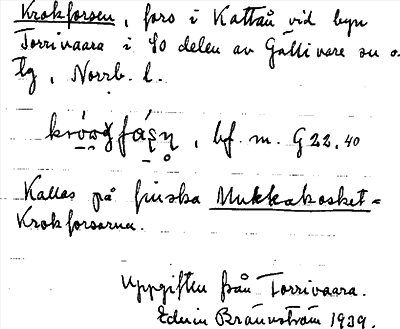 Krokforsen, fors i Kattån vid byn
Torrivaara i SO delen av Gällivare sn o.
tg, Norrb. l.
bf. m. G 22. 40
Kallas på finska Mukkakosket =
Krokforsarna.
Uppgiften från Torrivaara.
Edvin Brännström 1939.